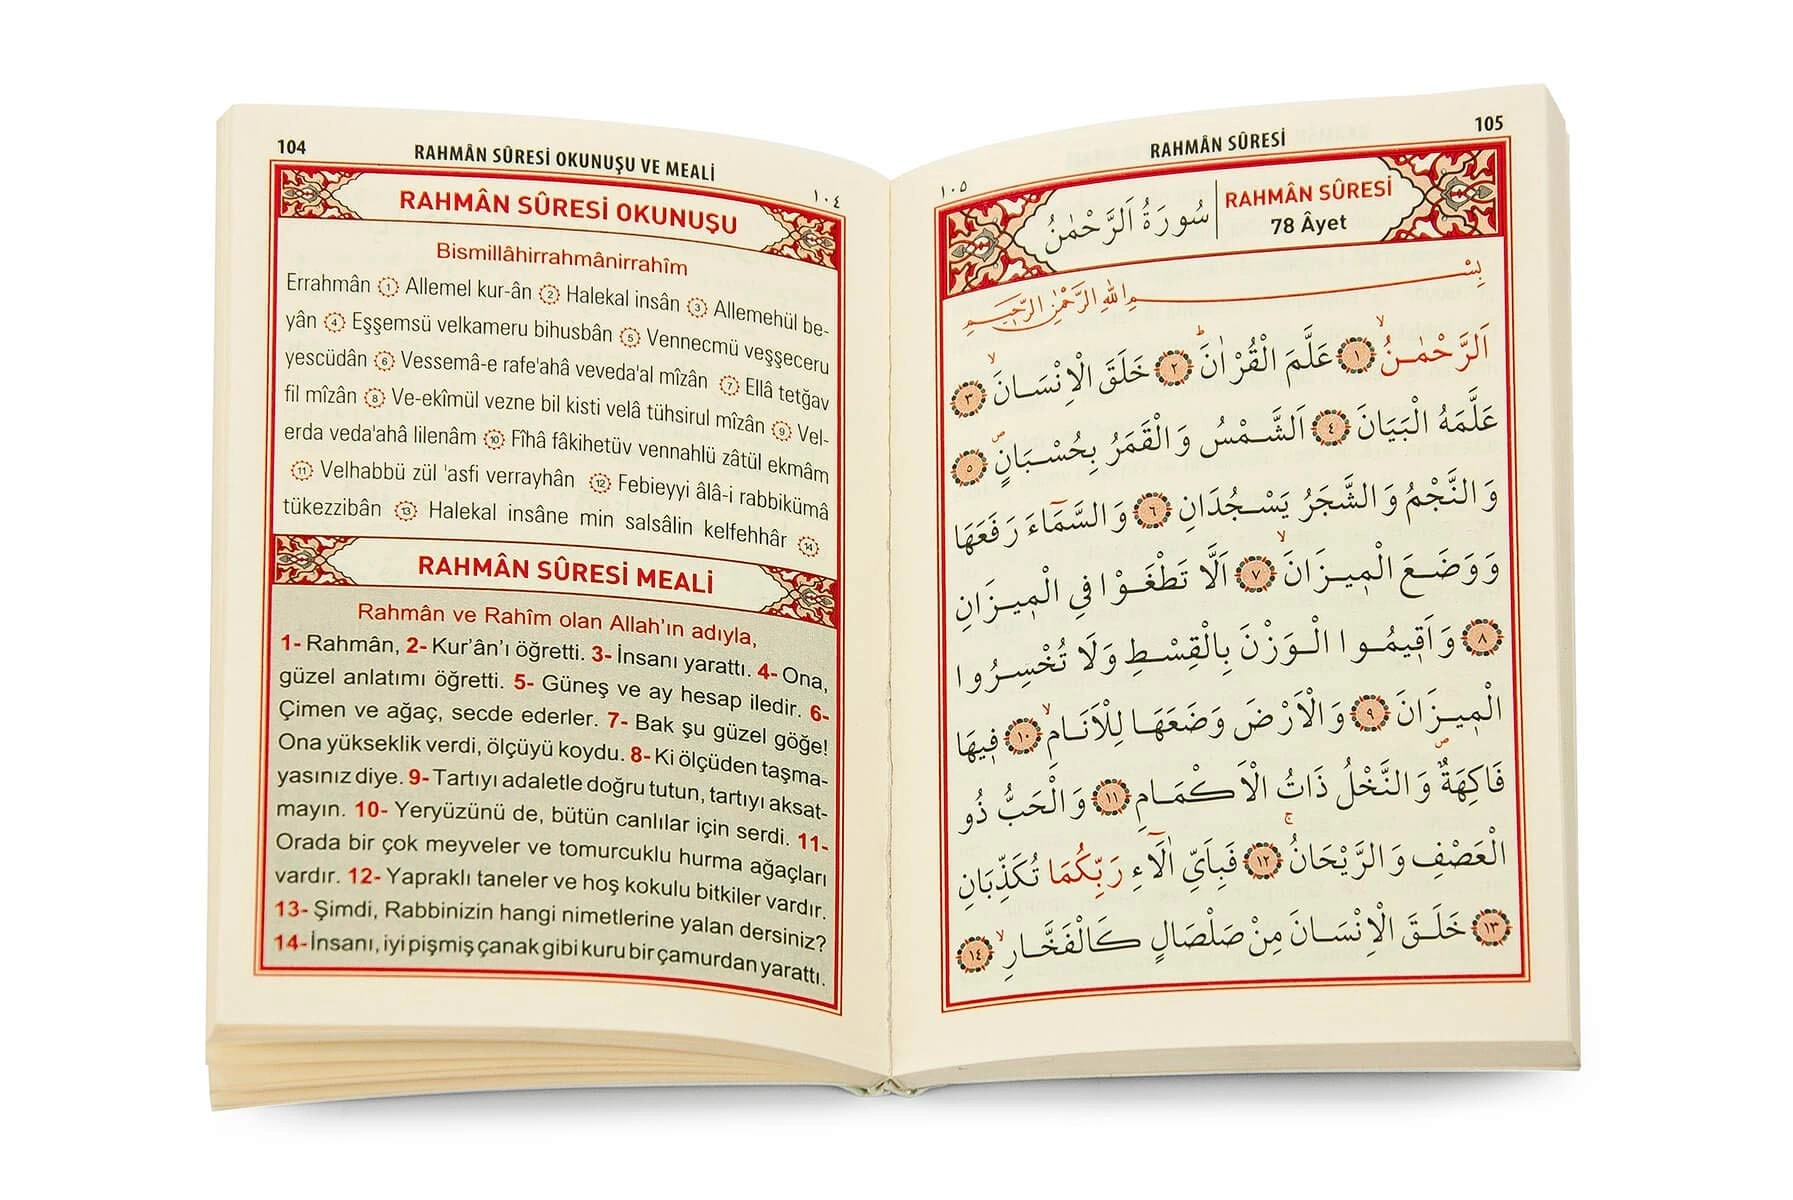 104
RAHMÂN SÛRESİ OKUNUŞU VE MEALİ
١٠٤
RAHMÂN SÛRESİ OKUNUŞU
Bismillâhirrahmânirrahîm
Errahmân 1 Allemel kur-ân 2 Halekal insân 3 Allemehül be-
yân 4 Eşşemsü velkameru bihusbân 5 Vennecmü veşşeceru
yescüdân 6 Vessemâ-e rafe'ahâ veveda'al mîzân 7 Ellâ tetğav
fil mîzân 8 Ve-ekîmül vezne bil kisti velâ tühsirul mîzân 9 Vel-
erda veda'ahâ lilenâm 10 Fîhâ fâkihetüv vennahlü zâtül ekmâm
11 Velhabbü zül 'asfi verrayhân 12 Febieyyi âlâ-i rabbikümâ
tükezzibân 13 Halekal insâne min salsâlin kelfehhâr 14
RAHMÂN SÛRESİ MEALİ
Rahmân ve Rahîm olan Allah'ın adıyla,
1- Rahmân, 2- Kur'ân'ı öğretti. 3- İnsanı yarattı. 4- Ona,
güzel anlatımı öğretti. 5- Güneş ve ay hesap iledir. 6-
Çimen ve ağaç, secde ederler. 7- Bak şu güzel göğe!
Ona yükseklik verdi, ölçüyü koydu. 8- Ki ölçüden taşma-
yasınız diye. 9- Tartıyı adaletle doğru tutun, tartıyı aksat-
mayın. 10- Yeryüzünü de, bütün canlılar için serdi. 11-
Orada bir çok meyveler ve tomurcuklu hurma ağaçları
vardır. 12- Yapraklı taneler ve hoş kokulu bitkiler vardır.
13- Şimdi, Rabbinizin hangi nimetlerine yalan dersiniz?
14- İnsanı, iyi pişmiş çanak gibi kuru bir çamurdan yarattı.
RAHMÂN SÛRESİ
105
١٠٥
سُورَةُ اَلرَّحْمٰنُ
RAHMÂN SÛRESİ
78 Âyet
بِسْمِ اللهِ الرَّحْمٰنِ الرَّحِيمِ
اَلرَّحْمٰنُۙ ١ عَلَّمَ الْقُرْاٰنَؕ ٢ خَلَقَ الْاِنْسَانَۙ ٣
عَلَّمَهُ الْبَيَانَ ٤ اَلشَّمْسُ وَالْقَمَرُ بِحُسْبَانٍۖ ٥
وَالنَّجْمُ وَالشَّجَرُ يَسْجُدَانِ ٦ وَالسَّمَٓاءَ رَفَعَهَا
وَوَضَعَ الْم۪يزَانَۙ ٧ اَلَّا تَطْغَوْا فِي الْم۪يزَانِ
٨ وَاَق۪يمُوا الْوَزْنَ بِالْقِسْطِ وَلَا تُخْسِرُوا
الْم۪يزَانَ ٩ وَالْاَرْضَ وَضَعَهَا لِلْاَنَامِۙ ١٠ ف۪يهَا
فَاكِهَةٌۖ وَالنَّخْلُ ذَاتُ الْاَكْمَامِ ١١ وَالْحَبُّ ذُو
الْعَصْفِ وَالرَّيْحَانُۚ ١٢ فَبِاَيِّ اٰلَٓاءِ رَبِّكُمَا تُكَذِّبَانِ
١٣ خَلَقَ الْاِنْسَانَ مِنْ صَلْصَالٍ كَالْفَخَّارِۙ ١٤